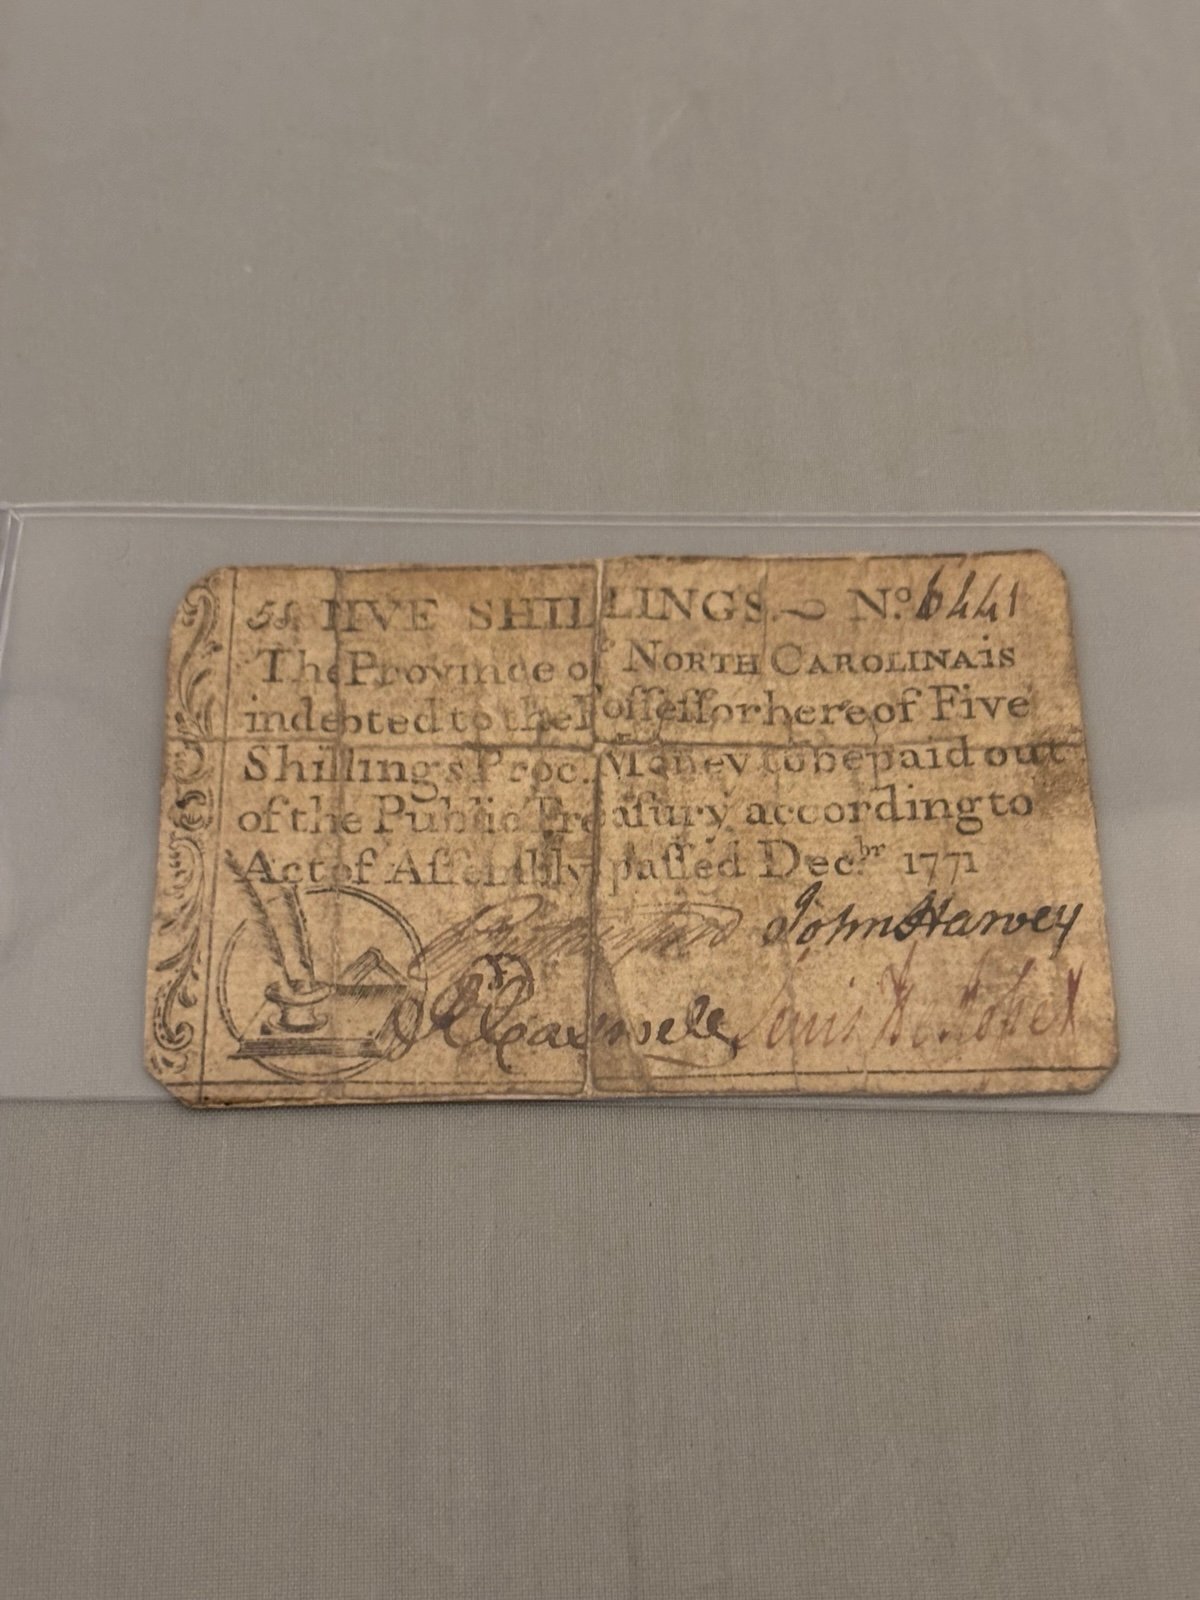 5s. FIVE SHILLINGS. No. 6441
The Province of NORTH CAROLINA is
indebted to the Poſſeſſor hereof Five
Shillings Proc. Money to be paid out
of the Public Treaſury according to
Act of Aſſembly paſſed Decbr 1771
John Harvey
Lewis De Roſſet